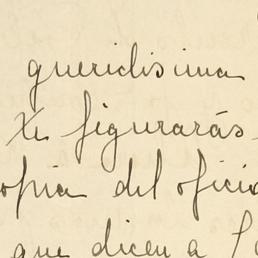 queridisima
Te figurarás
opia del oficio
que dicen a